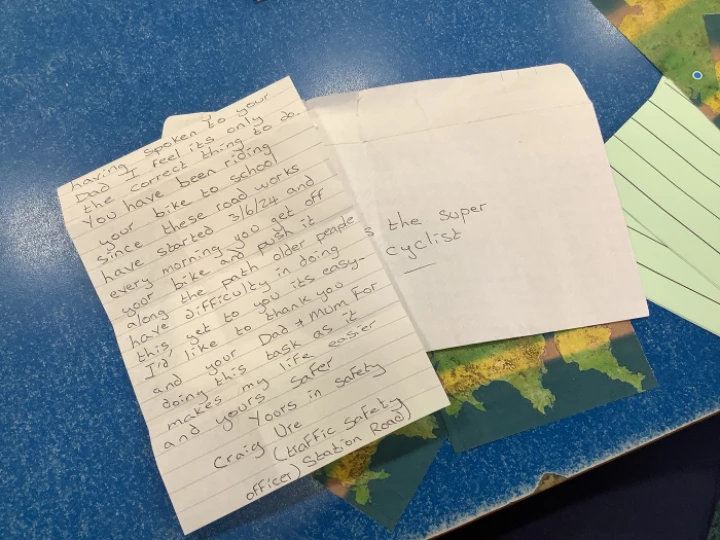 having spoken to your
Dad I feel its only
the correct thing to do.
You have been riding
your bike to school
since these road works
have started 3/6/24 and
every morning you get off
your bike and push it
along the path older people
have difficulty in doing
this yet to you its easy-
I'd like to thank you
and your Dad + Mum For
doing this task as it
makes my life easier
and yours safer
Yours in safety
Craig Ure
(traffic safety
officer) Station Road)
s the super
cyclist